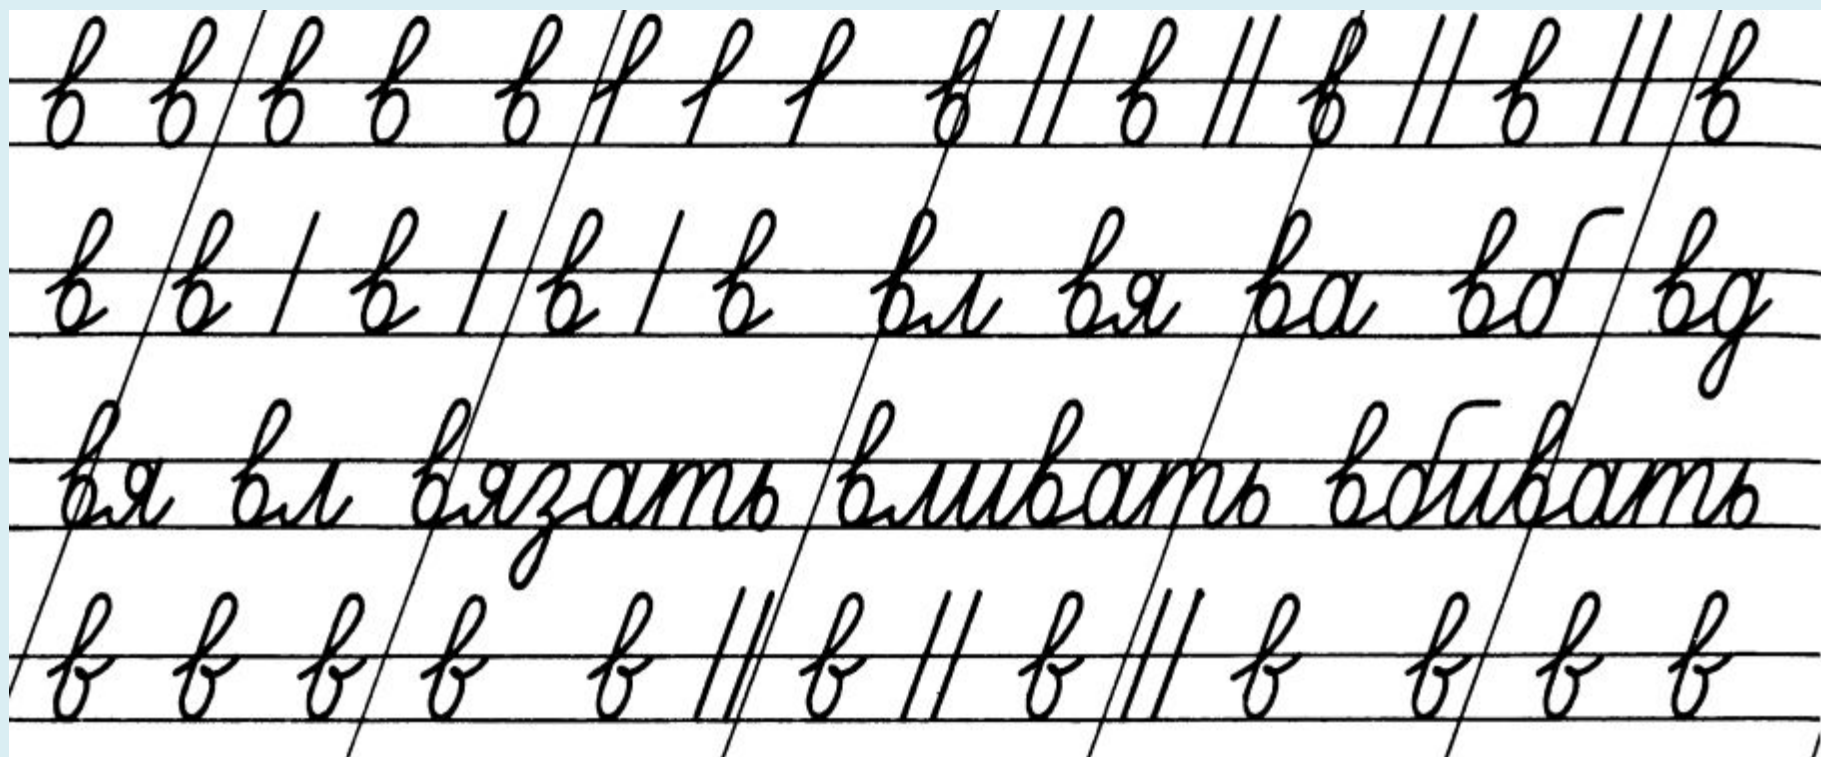 в в в в в / / / в // в // в // в // в
в в / в / в / в вл вя ва вб вд
вя вл вязать вливать вбивать
в в в в в // в // в // в в в в